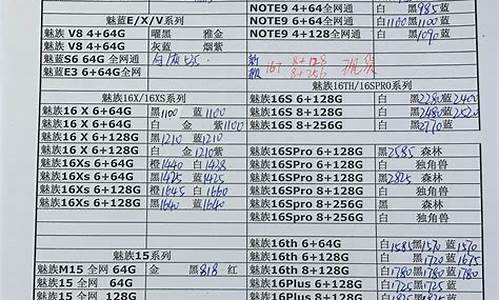 NOTE9 4+64全网通 白 黑985蓝
魅蓝E/X/V系列 NOTE9 6+64全网通 白1100黑1100蓝
魅族 V8 4+64G 曜黑 雅金 NOTE9 4+128全网通 白 黑1090蓝
魅族 V8 4+64G 灰蓝 烟紫
魅蓝S6 64G 全网通
魅蓝E3 6+64G全网通
16T 8+128
8+256
魅族16X/16XS系列 魅族16TH/16SPRO系列
魅族16 X 6+64G 黑1100 蓝1100 魅族16S 6+128G 白 黑2280蓝2400
魅族16 X 6+64G 白 金 紫1100 魅族16S 8+128G 白 黑2480蓝2520
魅族16 X 6+128G 黑1210 蓝1210 魅族16S 8+256G 白 黑2770蓝
魅族16 X 6+128G 白 金 1210紫
魅族16Xs 6+64G 橙1440 白1428 魅族16SPro 6+128G 黑2585 森林
魅族16Xs 6+64G 黑1425 蓝1425 魅族16SPro 6+128G 白 独角兽
魅族16Xs 6+128G 橙1645 白1660 魅族16SPro 8+128G 黑2825 森林
魅族16Xs 6+128G 黑1640 蓝1640 魅族16SPro 8+128G 白 独角兽
魅族16SPro 8+256G 黑 森林
魅族16SPro 8+256G 白 独角兽
魅族15系列 魅族16th 6+64G 白1585黑1570蓝1570
魅族M15 全网 64G 金 黑818 红 魅族16th 6+128G 白 黑1720蓝1675
魅族15 全网 64G 魅族16th 8+128G 白1780黑1780蓝1780
魅族15 全网 128G 魅族16Plus 6+128G 白1725黑1725蓝
魅族16Plus 8+128G